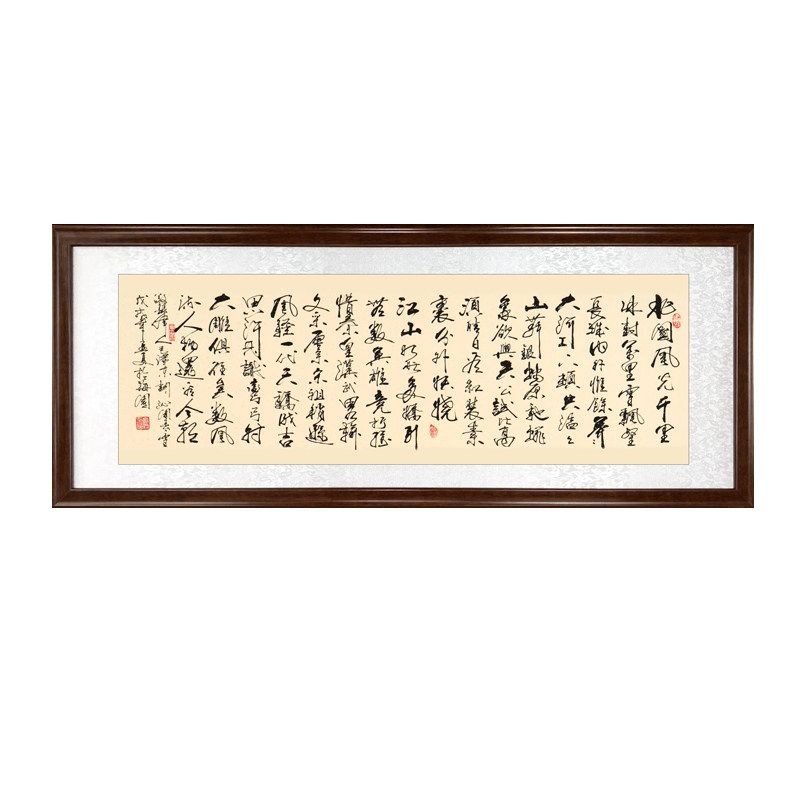 北國風光千里
冰封萬里雪飄望
長城內外惟餘莽々
大河上下頓失滔々
山舞銀蛇原馳蠟
象欲與天公試比高
須晴日看紅裝素
裹分外妖嬈
江山如此多嬌引
無數英雄競折腰
惜秦皇漢武略輸
文采唐宗宋祖稍遜
風騷一代天驕成吉
思汗只識彎弓射
大雕俱往矣數風
流人物還看今朝
人毛澤東詞沁園春雪
戊戌年於梅園